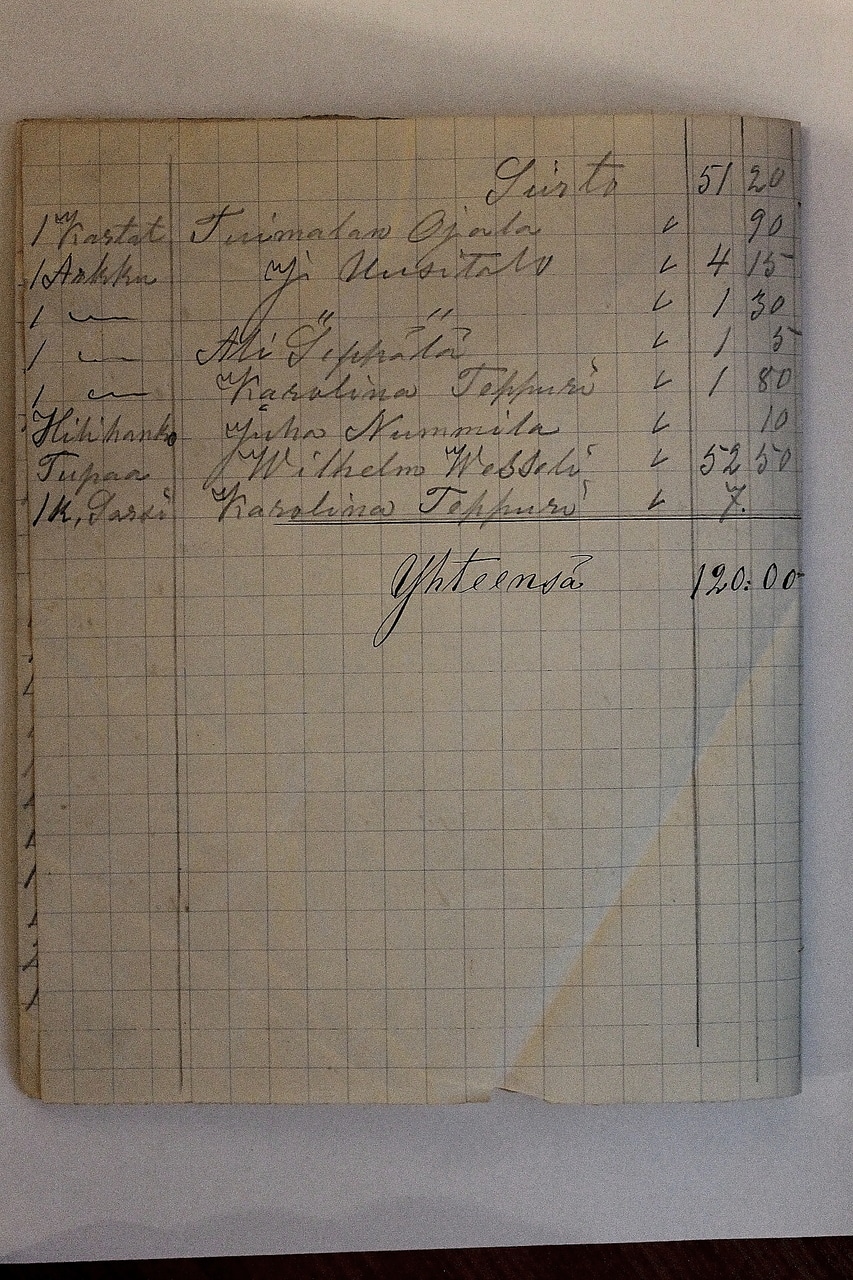 Siirto 51 20
1 Kartat Tuimalan Ojala ✓ 90
1 Arkku Yi Uusitalo ✓ 4 15
1 — " " ✓ 1 30
1 — Ali Seppälä ✓ 1 5
1 — Karolina Teppuri ✓ 1 80
Hilihanko Juha Nummila ✓ 10
Tupaa Wilhelm Wesseli ✓ 52 50
1 K, Sarsi Karolina Teppuri ✓ 7.
Yhteensä 120:00